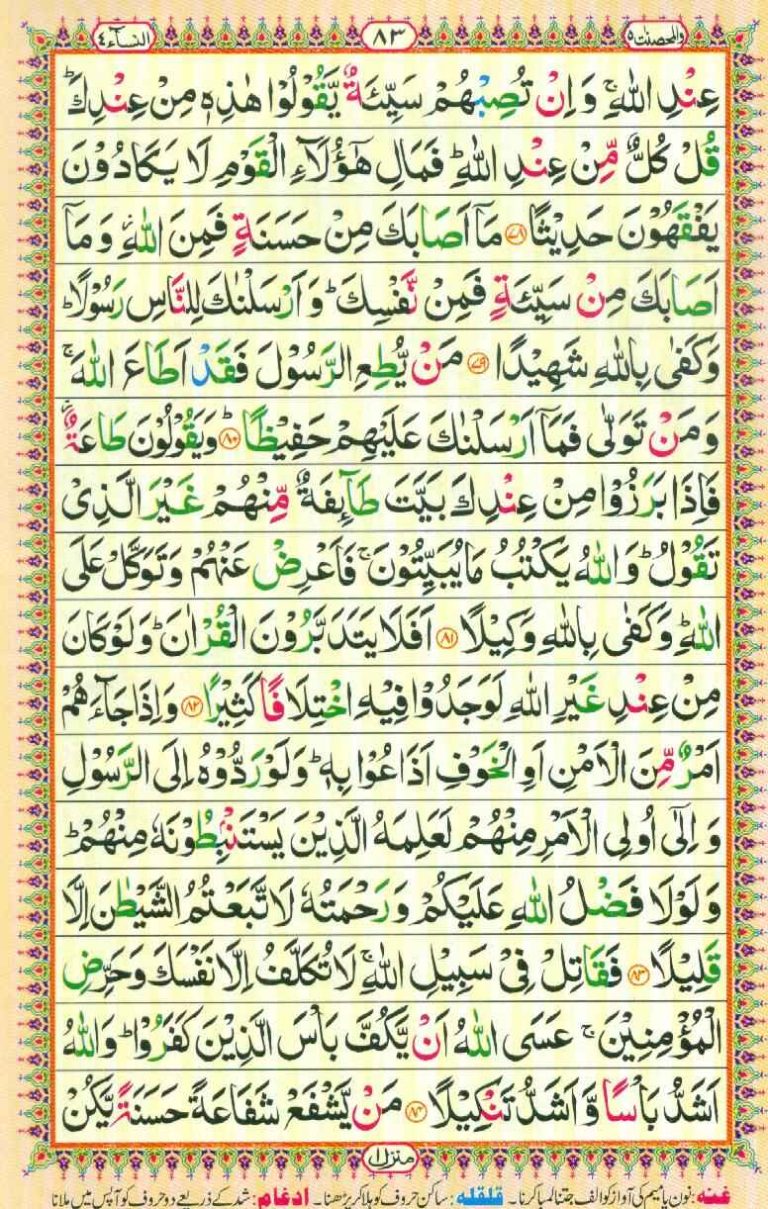 والمحصنت ۵
۸۳
النسآء ٤
عِنْدِ اللّٰهِ ۚ وَاِنْ تُصِبْهُمْ سَیِّئَةٌ یَّقُوْلُوْا هٰذِهٖ مِنْ عِنْدِكَ ؕ
قُلْ كُلٌّ مِّنْ عِنْدِ اللّٰهِ ؕ فَمَالِ هٰۤؤُلَآءِ الْقَوْمِ لَا یَكَادُوْنَ
یَفْقَهُوْنَ حَدِیْثًا ۷۸ مَاۤ اَصَابَكَ مِنْ حَسَنَةٍ فَمِنَ اللّٰهِ ؗ وَ مَاۤ
اَصَابَكَ مِنْ سَیِّئَةٍ فَمِنْ نَّفْسِكَ ؕ وَ اَرْسَلْنٰكَ لِلنَّاسِ رَسُوْلًا ؕ
وَكَفٰی بِاللّٰهِ شَهِیْدًا ۷۹ مَنْ یُّطِعِ الرَّسُوْلَ فَقَدْ اَطَاعَ اللّٰهَ ۚ
وَ مَنْ تَوَلّٰی فَمَاۤ اَرْسَلْنٰكَ عَلَیْهِمْ حَفِیْظًا ۸۰ ؕ وَیَقُوْلُوْنَ طَاعَةٌ ؗ
فَاِذَا بَرَزُوْا مِنْ عِنْدِكَ بَیَّتَ طَآىِٕفَةٌ مِّنْهُمْ غَیْرَ الَّذِیْ
تَقُوْلُ ؕ وَ اللّٰهُ یَكْتُبُ مَا یُبَیِّتُوْنَ ۚ فَاَعْرِضْ عَنْهُمْ وَ تَوَكَّلْ عَلَی
اللّٰهِ ؕ وَ كَفٰی بِاللّٰهِ وَكِیْلًا ۸۱ اَفَلَا یَتَدَبَّرُوْنَ الْقُرْاٰنَ ؕ وَ لَوْ كَانَ
مِنْ عِنْدِ غَیْرِ اللّٰهِ لَوَجَدُوْا فِیْهِ اخْتِلَافًا كَثِیْرًا ۸۲ وَ اِذَا جَآءَهُمْ
اَمْرٌ مِّنَ الْاَمْنِ اَوِ الْخَوْفِ اَذَاعُوْا بِهٖ ؕ وَ لَوْ رَدُّوْهُ اِلَی الرَّسُوْلِ
وَ اِلٰۤی اُولِی الْاَمْرِ مِنْهُمْ لَعَلِمَهُ الَّذِیْنَ یَسْتَنْۢبِطُوْنَهٗ مِنْهُمْ ؕ
وَ لَوْلَا فَضْلُ اللّٰهِ عَلَیْكُمْ وَ رَحْمَتُهٗ لَاتَّبَعْتُمُ الشَّیْطٰنَ اِلَّا
قَلِیْلًا ۸۳ فَقَاتِلْ فِیْ سَبِیْلِ اللّٰهِ ۚ لَا تُكَلَّفُ اِلَّا نَفْسَكَ وَ حَرِّضِ
الْمُؤْمِنِیْنَ ۚ عَسَی اللّٰهُ اَنْ یَّكُفَّ بَاْسَ الَّذِیْنَ كَفَرُوْا ؕ وَ اللّٰهُ
اَشَدُّ بَاْسًا وَّ اَشَدُّ تَنْكِیْلًا ۸۴ مَنْ یَّشْفَعْ شَفَاعَةً حَسَنَةً یَّكُنْ
منزل ۱
غنہ: نون یا میم کی آواز کو الف جتنا لمبا کرنا۔ قلقلہ: ساکن حروف کو ہلا کر پڑھنا۔ ادغام: شد کے ذریعے دو حروف کو آپس میں ملانا